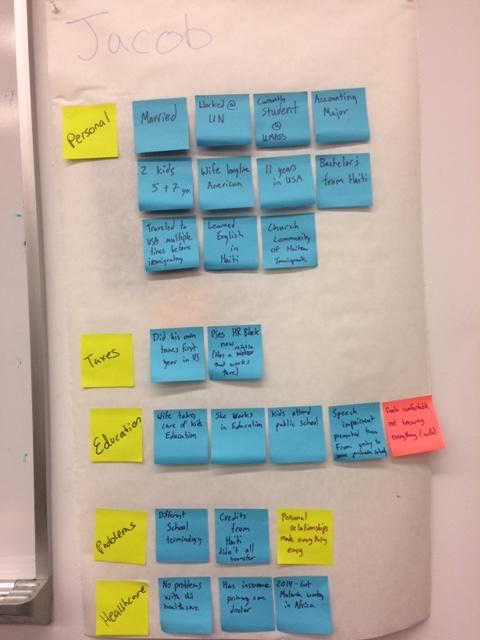 Jacob
Personal
Married
Worked @
UN
Currently
Student
@
UMASS
Accounting
Major
2 kids
5 + 7 yrs
Wife
American
11 years
in USA
Bachelors
from Haiti
Traveled to
USA multiple
times before
immigrating
Learned
English
in
Haiti
Church
Community
of Haitian
Immigrants
Taxes
Did his own
taxes first
year in US
Uses HR Block
now
(Has a relative
that works
there)
Education
Wife takes
care of kids
Education
She works
in Education
Kids attend
public school
Speech
impairment
prevented them
from going to
some private school
comfortable
not knowing
everything (wife)
Problems
Different
School
terminology
Credits
from
Haiti
didn't all
transfer
Personal
relationships
Made everything
easy
Healthcare
No problems
with US
healthcare
Has insurance
primary care
doctor
2014 - Got
Malaria
in Africa